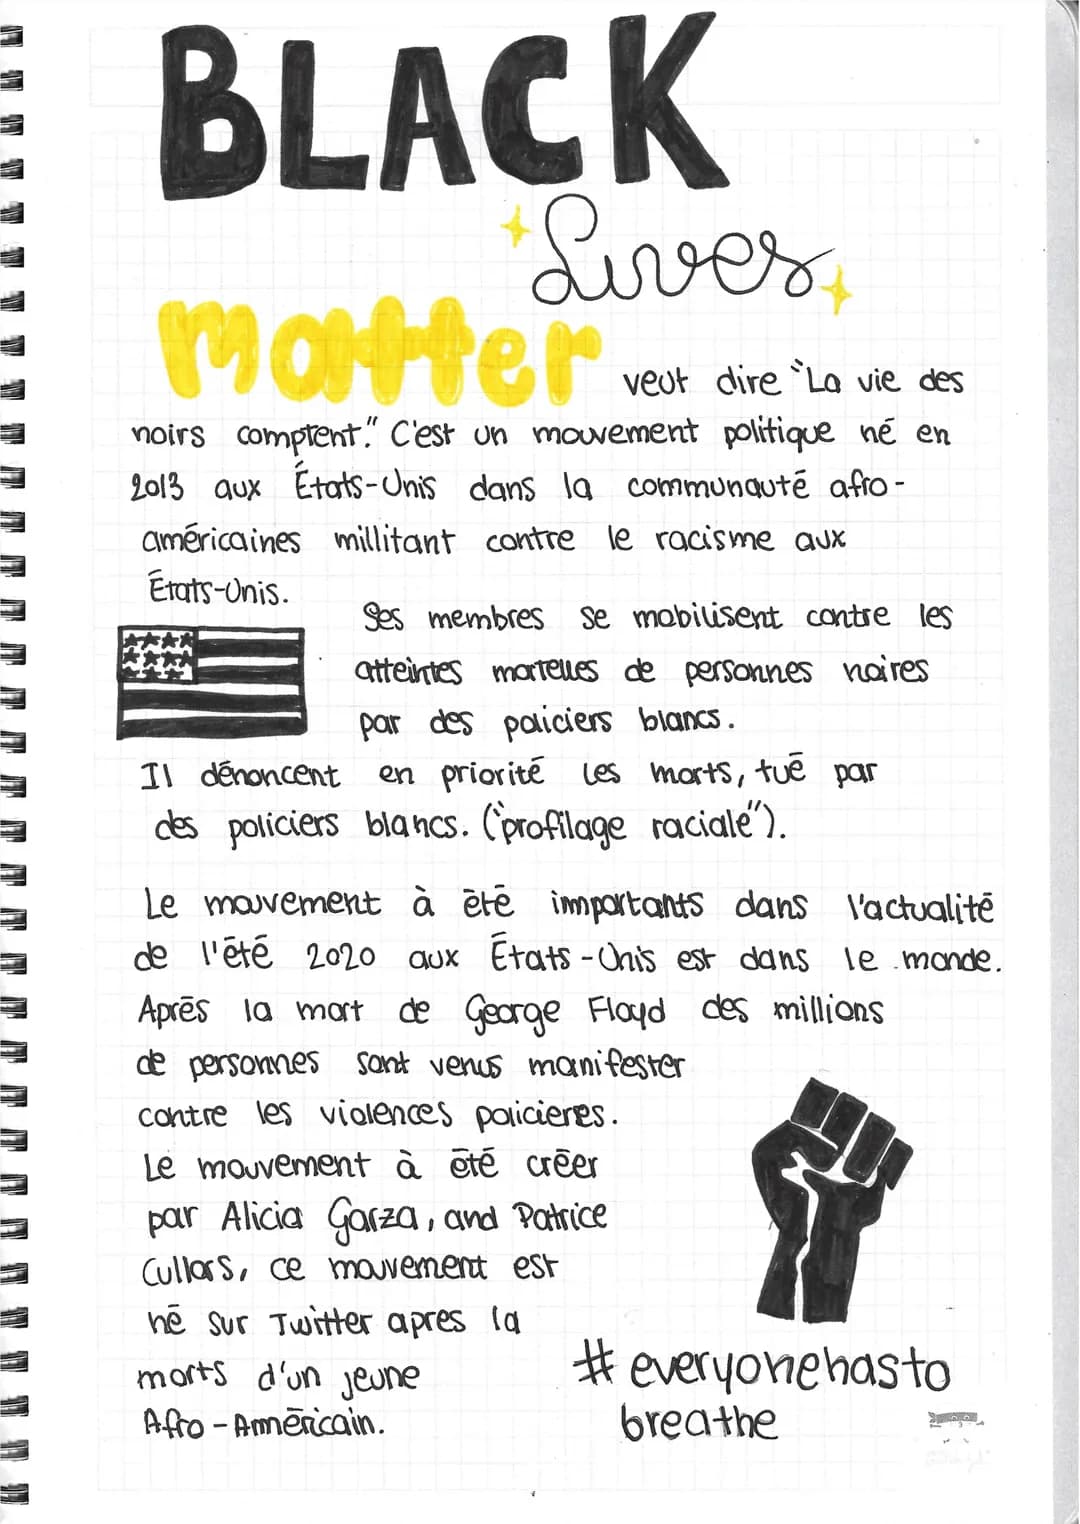 BLACK
Lives
matter veut dire "La vie des
noirs comptent." C'est un mouvement politique né en
2013 aux États-Unis dans la communauté afro-
américaines millitant contre le racisme aux
États-Unis.
Ses membres se mobilisent contre les
atteintes mortelles de personnes noires
par des policiers blancs.
Il dénoncent en priorité les morts, tué par
des policiers blancs. ("profilage raciale").
Le mouvement à été importants dans l'actualité
de l'été 2020 aux États-Unis est dans le monde.
Après la mort de George Floyd des millions
de personnes sont venus manifester
contre les violences policieres.
Le mouvement à été créer
par Alicia Garza, and Patrice
Cullors, ce mouvement est
né sur Twitter apres la
morts d'un jeune
Afro-Américain.
#everyonehasto
breathe